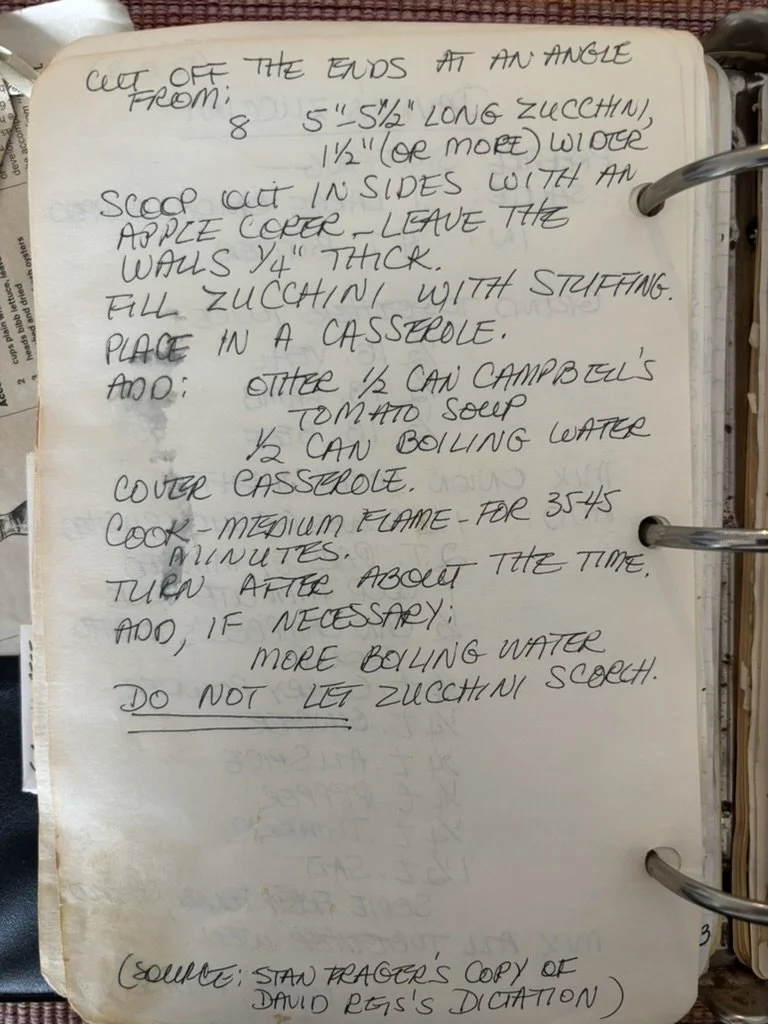 CUT OFF THE ENDS AT AN ANGLE
FROM:
8 5"-5½" LONG ZUCCHINI,
1½" (OR MORE) WIDER
SCOOP OUT INSIDES WITH AN
APPLE CORER - LEAVE THE
WALLS ¼" THICK.
FILL ZUCCHINI WITH STUFFING.
PLACE IN A CASSEROLE.
ADD: OTHER ½ CAN CAMPBELL'S
TOMATO SOUP
½ CAN BOILING WATER
COVER CASSEROLE.
COOK - MEDIUM FLAME - FOR 35-45
MINUTES.
TURN AFTER ABOUT THE TIME.
ADD, IF NECESSARY:
MORE BOILING WATER
DO NOT LET ZUCCHINI SCORCH.
(SOURCE: STAN FRAGER'S COPY OF
DAVID REIS'S DICTATION)
3